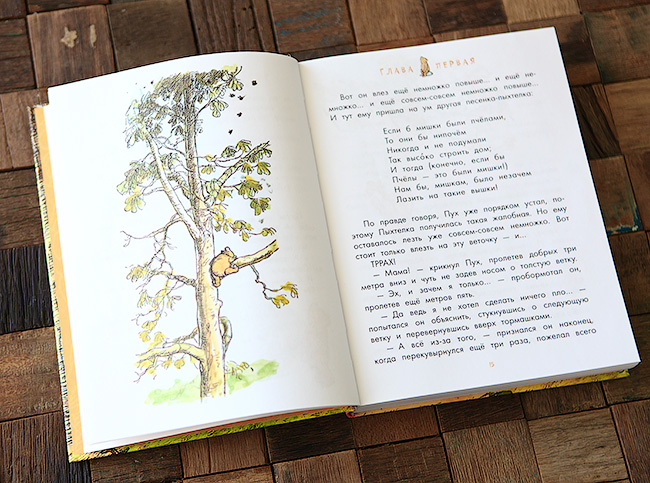 ГЛАВА ПЕРВАЯ
Вот он влез ещё немножко повыше... и ещё не-
множко... и ещё совсем-совсем немножко повыше...
И тут ему пришла на ум другая песенка-пыхтелка:
Если б мишки были пчёлами,
То они бы нипочём
Никогда и не подумали
Так высо́ко строить дом;
И тогда (конечно, если бы
Пчёлы — это были мишки!)
Нам бы, мишкам, было незачем
Лазить на такие вышки!
По правде говоря, Пух уже порядком устал, по-
этому Пыхтелка получилась такая жалобная. Но ему
оставалось лезть уже совсем-совсем немножко. Вот
стоит только влезть на эту веточку — и...
ТРРАХ!
— Мама! — крикнул Пух, пролетев добрых три
метра вниз и чуть не задев носом о толстую ветку.
— Эх, и зачем я только... — пробормотал он,
пролетев ещё метров пять.
— Да ведь я не хотел сделать ничего пло... —
попытался он объяснить, стукнувшись о следующую
ветку и перевернувшись вверх тормашками.
— А всё из-за того, — признался он наконец,
когда перекувырнулся ещё три раза, пожелал всего